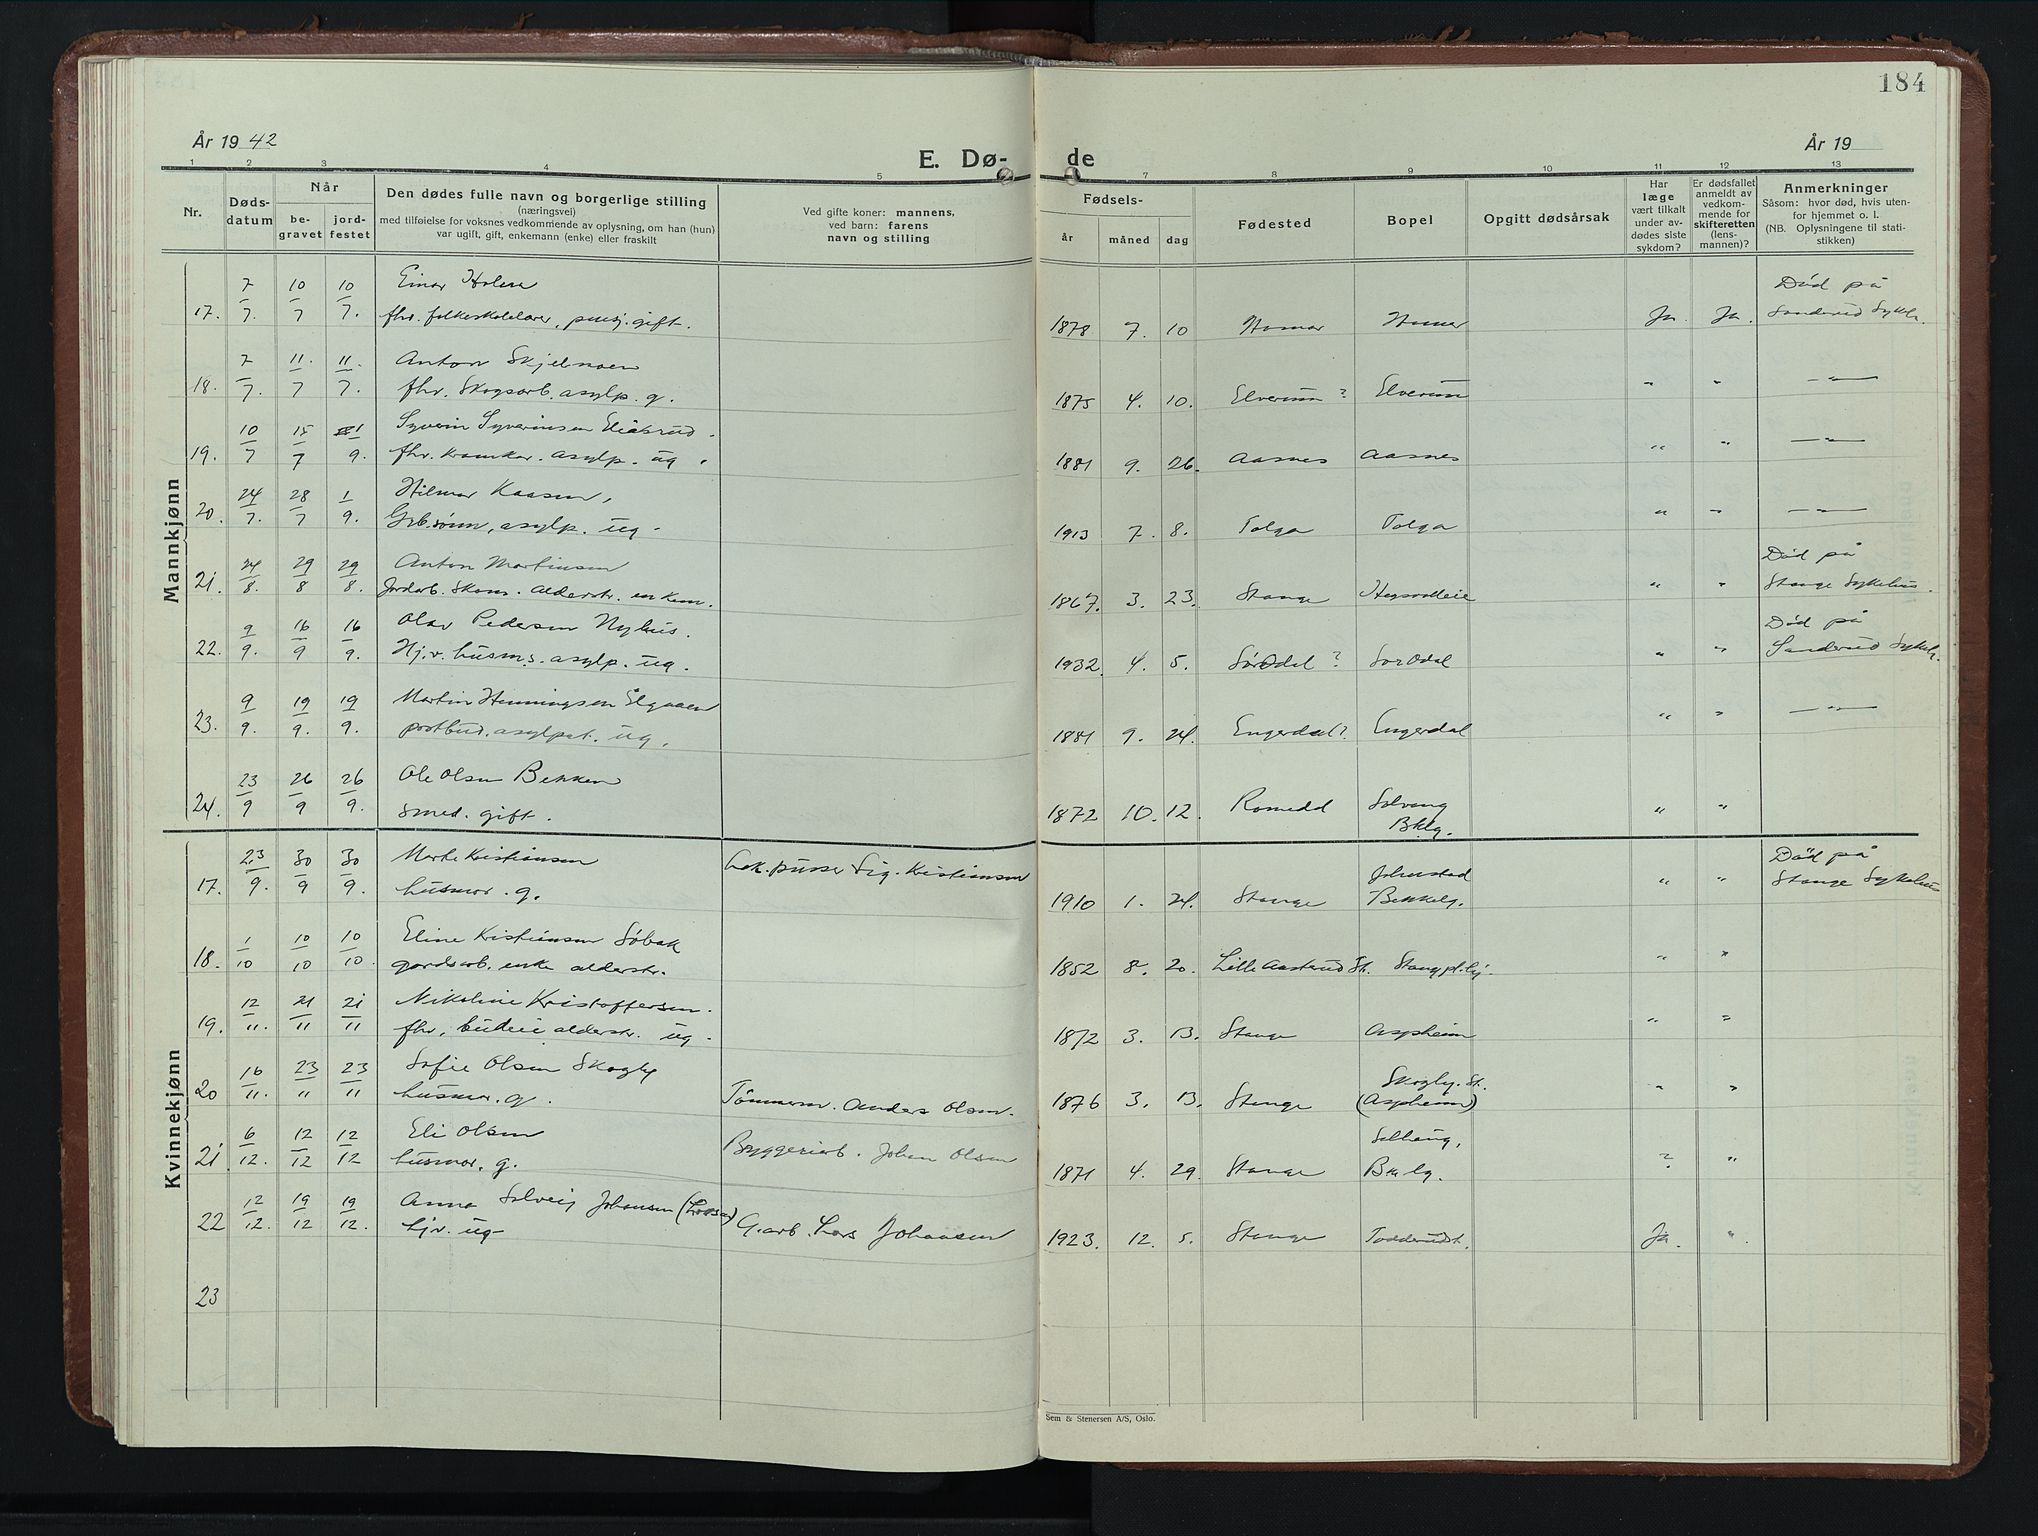 184
År 1942
År 19
E. Dø-
de
1 2 3 4 5 7 8 9 10 11 12 13
Nr.
Døds-
datum
Når
be-
gravet
jord-
festet
Den dødes fulle navn og borgerlige stilling
(næringsvei)
med tilføielse for voksnes vedkommende av oplysning, om han (hun)
var ugift, gift, enkemann (enke) eller fraskilt
Ved gifte koner: mannens,
ved barn: farens
navn og stilling
Fødsels-
år måned dag
Fødested
Bopel
Opgitt dødsårsak
Har
læge
vært tilkalt
under av-
dødes siste
sykdom?
Er dødsfallet
anmeldt av
vedkom-
mende for
skifteretten
(lens-
mannen)?
Anmerkninger
Såsom: hvor død, hvis uten-
for hjemmet o. l.
(NB. Oplysningene til stati-
stikken)
Mannkjønn
7 10 10 Einar Holen Død på
17. 7. 7 7. fhv. folkeskolelærer, pensj. gift. 1878 7. 10 Hamar Hamar Ja. Ja. Sanderud Sykeh.
7 11. 11. Anton Skjelmoen
18. 7. 7 7. fhv. Skogsarb. asylp. g. 1875 4. 10. Elverum ? Elverum " " — " —
10 15 1 Syverin Syverinsen
19. 7 7 9. fhv. asylp. ug. 1881 9. 26. Aasnes Aasnes " " — " —
24 28 1 Hilmar Kaasen,
20. 7. 7 9. Grb.sønn, asylp. ug. 1913 7. 8. Tolga Tolga " " — " —
24 29 29 Anton Martinsen Død på
21. 8. 8 8. Jordarb. Skom. Alderstr. enkem. 1867. 3. 23. Stange " " Stange Sykehus.
9 16 16 Olav Pedersen Nyhus. Død på
22. 9. 9 9. Hj.v. husm.s. asylp. ug. 1932 4. 5. Sør Odal ? Sør Odal " " Sanderud Sykeh.
9 19 19 Martin Henningsen Elgaaen
23. 9. 9. 9. postbud. asylpat. ug. 1881 9. 24. Engerdal? Engerdal " " — " —
23 26 26 Ole Olsen Bekken Solvang
24. 9 9 9. smed. gift. 1872 10. 12. Romedal Bklg. " "
Kvinnekjønn
23 30 30 Marte Kristiansen Lok.pusser Sig. Kristiansen Johnstad Død på
17. 9. 9 9. husmor. g. 1910 1. 24. Stange Bekkelg. " " Stange Sykehus
1 10 10 Eline Kristiansen Søbak
18. 10 10 10. gardsarb. enke alderstr. 1852 8. 20. Lille Aasterud St. Stang pl.hj. " "
12 21 21 Nikoline Kristoffersen.
19. 11. 11 11 fhv. budeie alderstr. ug. 1872 3. 13. Stange Aspheim " "
16 23 23 Sofie Olsen Skogly Skogly. St.
20 11. 11 11 husmor. g. Tømmerm. Anders Olsen. 1876 3. 13. Stange (Aspheim) " "
6 12 12 Eli Olsen Bryggeriarb. Johan Olsen Solhaug,
21 12. 12 12 husmor. g. 1871 4. 29. Stange Bklg. ? "
12 19 19 Anna Solveig Johansen (Larsen)
22 12. 12 12. hjv. ug. G.arb. Lars Johansen 1923. 12. 5. Stange Ja. "
23
Sem & Stenersen A/S, Oslo.